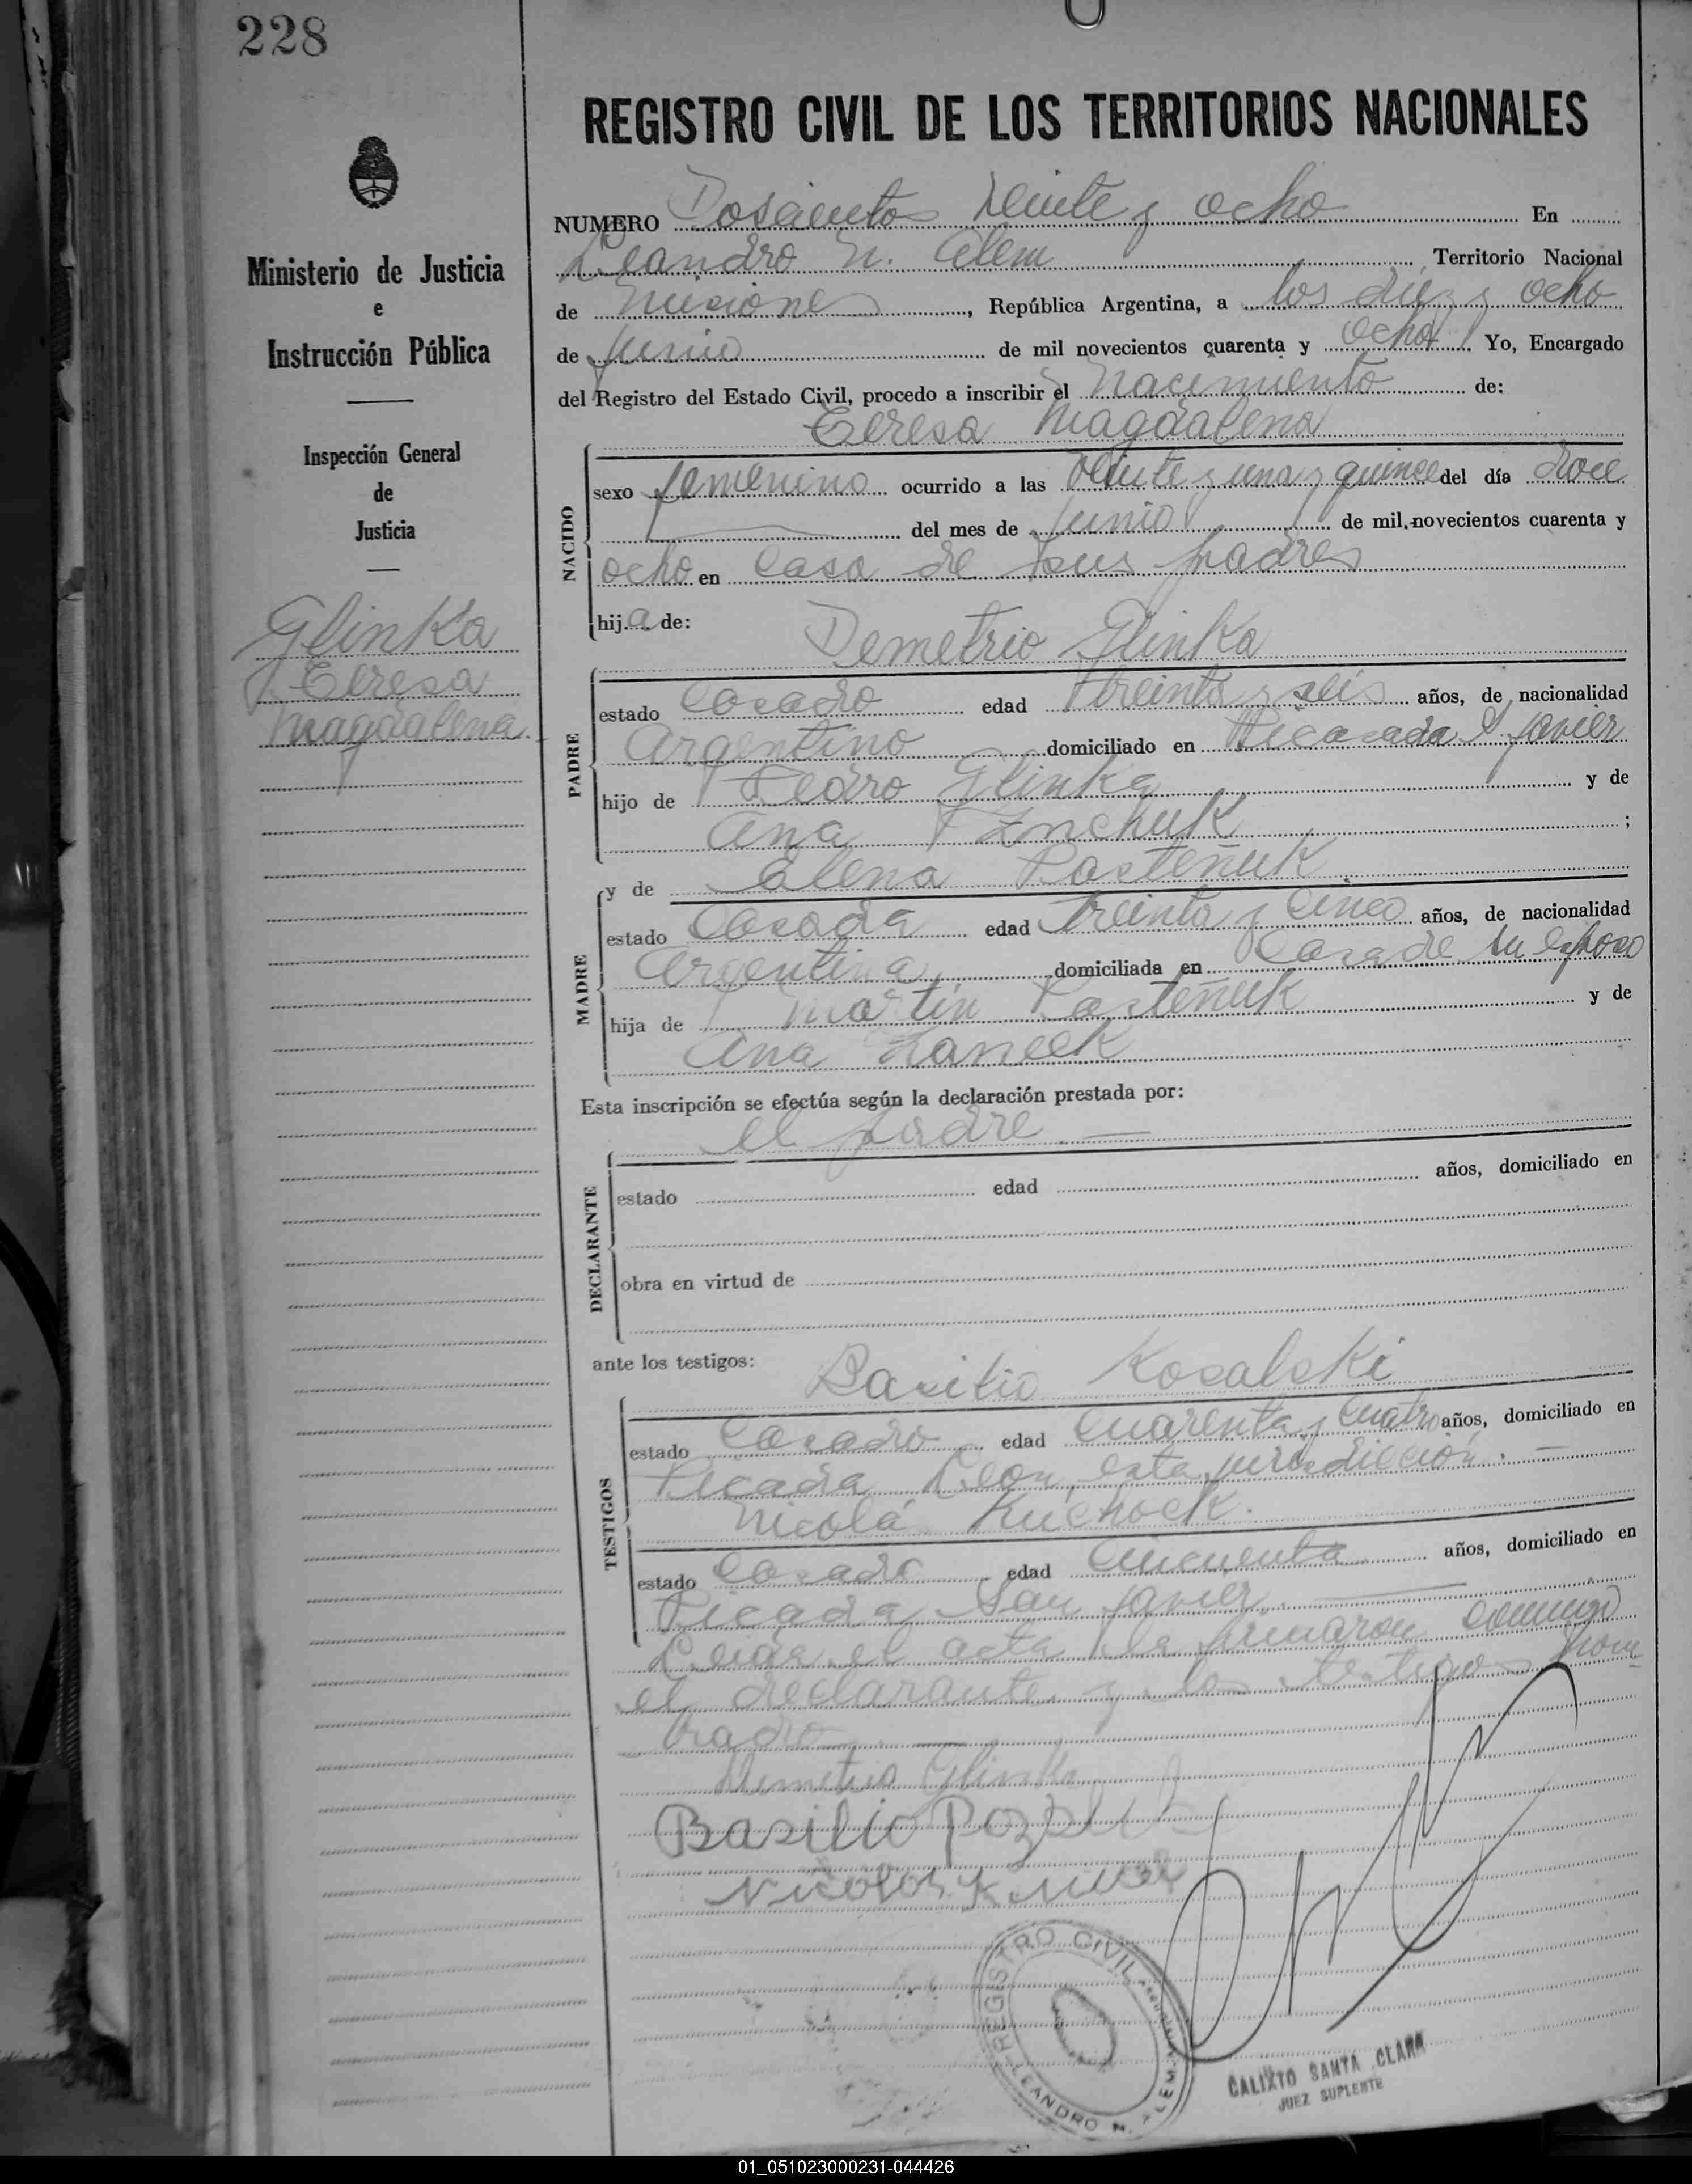 228
Ministerio de Justicia
e
Instrucción Pública
Inspección General
de
Justicia
Glinka
Teresa
Magdalena.
REGISTRO CIVIL DE LOS TERRITORIOS NACIONALES
NUMERO Doscientos veinte y ocho En
Leandro N. Alem Territorio Nacional
de Misiones, República Argentina, a los diez y ocho
de Junio de mil novecientos cuarenta y ocho Yo, Encargado
del Registro del Estado Civil, procedo a inscribir el Nacimiento de:
Teresa Magdalena
NACIDO
sexo femenino ocurrido a las veinte y una y quince del día doce
del mes de Junio de mil novecientos cuarenta y
ocho en casa de sus padres
hija de: Demetrio Glinka
PADRE
estado Casado edad treinta y seis años, de nacionalidad
Argentino domiciliado en Picada S Javier
hijo de Pedro Glinka y de
Ana ;
y de Elena Posteñuk
MADRE
estado Casada edad treinta y cinco años, de nacionalidad
Argentina domiciliada en Casa de su esposo
hija de Martín Posteñuk y de
Ana
Esta inscripción se efectúa según la declaración prestada por:
el padre. —
DECLARANTE
estado edad años, domiciliado en
obra en virtud de
ante los testigos: Basilio Kosalski
TESTIGOS
estado Casado edad Cuarenta y Cuatro años, domiciliado en
Picada Leon, esta jurisdicción. —
Nicolá Kuchock.
estado Casado edad Cincuenta años, domiciliado en
Picada San Javier. —
Leida el acta la firmaron conmigo
el declarante y los testigos nom-
brado. —
Demetrio Glinka
Basilio
Nicolas
REGISTRO CIVIL
LEANDRO N. ALEM
CALIXTO SANTA CLARA
JUEZ SUPLENTE
01_051023000231-044426